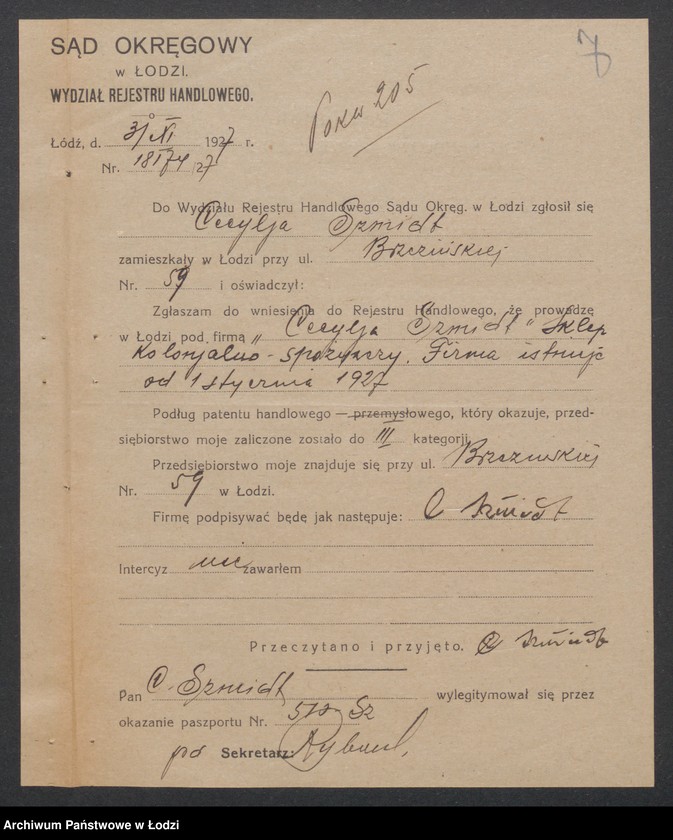 7
SĄD OKRĘGOWY
w ŁODZI.
WYDZIAŁ REJESTRU HANDLOWEGO.
Pokw 205
Łódź, d. 31/XI 1927 r.
Nr. 18174/27
Do Wydziału Rejestru Handlowego Sądu Okręg. w Łodzi zgłosił się
Cecylja Szmidt
zamieszkały w Łodzi przy ul. Brzezińskiej
Nr. 59 i oświadczył:
Zgłaszam do wniesienia do Rejestru Handlowego, że prowadzę
w Łodzi pod firmą „Cecylja Szmidt" sklep
kolonjalno-spożywczy. Firma istnieje
od 1 stycznia 1927
Podług patentu handlowego — przemysłowego, który okazuje, przed-
siębiorstwo moje zaliczone zostało do III kategorji.
Przedsiębiorstwo moje znajduje się przy ul. Brzezińskiej
Nr. 59 w Łodzi.
Firmę podpisywać będę jak następuje: C Szmidt
Intercyz nie zawarłem
Przeczytano i przyjęto. C Szmidt
Pan C. Szmidt wylegitymował się przez
okazanie paszportu Nr.
Sekretarz:
Archiwum Państwowe w Łodzi